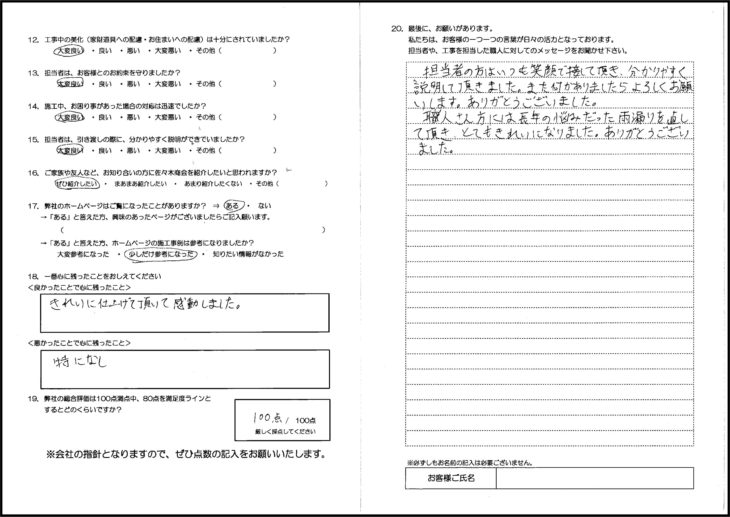 12. 工事中の美化（家財道具への配慮・お住まいへの配慮）は十分にされていましたか？
大変良い ・ 良い ・ 悪い ・ 大変悪い ・ その他（　　　）
13. 担当者は、お客様とのお約束を守りましたか？
大変良い ・ 良い ・ 悪い ・ 大変悪い ・ その他（　　　）
14. 施工中、お困り事があった場合の対応は迅速でしたか？
大変良い ・ 良い ・ 悪い ・ 大変悪い ・ その他（　　　）
15. 担当者は、引き渡しの際に、分かりやすく説明ができていましたか？
大変良い ・ 良い ・ 悪い ・ 大変悪い ・ その他（　　　）
16. ご家族や友人など、お知り合いの方に佐々木商会を紹介したいと思われますか？
ぜひ紹介したい ・ まあまあ紹介したい ・ あまり紹介したくない ・ その他（　　　）
17. 弊社のホームページはご覧になったことがありますか？ ⇒ ある ・ ない
→「ある」と答えた方、興味のあったページがございましたらご記入願います。
（　　　）
→「ある」と答えた方、ホームページの施工事例は参考になりましたか？
大変参考になった ・ 少しだけ参考になった ・ 知りたい情報がなかった
18. 一番心に残ったことをおしえてください
<良かったことで心に残ったこと>
きれいに仕上げて頂いて感動しました。
<悪かったことで心に残ったこと>
特になし
19. 弊社の総合評価は100点満点中、80点を満足度ラインと
するとどのくらいですか？
100点 / 100点
厳しく採点してください
※会社の指針となりますので、ぜひ点数の記入をお願いいたします。
20. 最後に、お願いがあります。
私たちは、お客様の一つ一つの言葉が日々の活力となっております。
担当者や、工事を担当した職人に対してのメッセージをお聞かせ下さい。
担当者の方はいつも笑顔で接して頂き、分かりやすく
説明して頂きました。また何かありましたらよろしくお願
いします。ありがとうございました。
職人さん方には長年の悩みだった雨漏りを直し
て頂き、とてもきれいになりました。ありがとうござい
ました。
※必ずしもお名前の記入は必要ございません。
お客様ご氏名